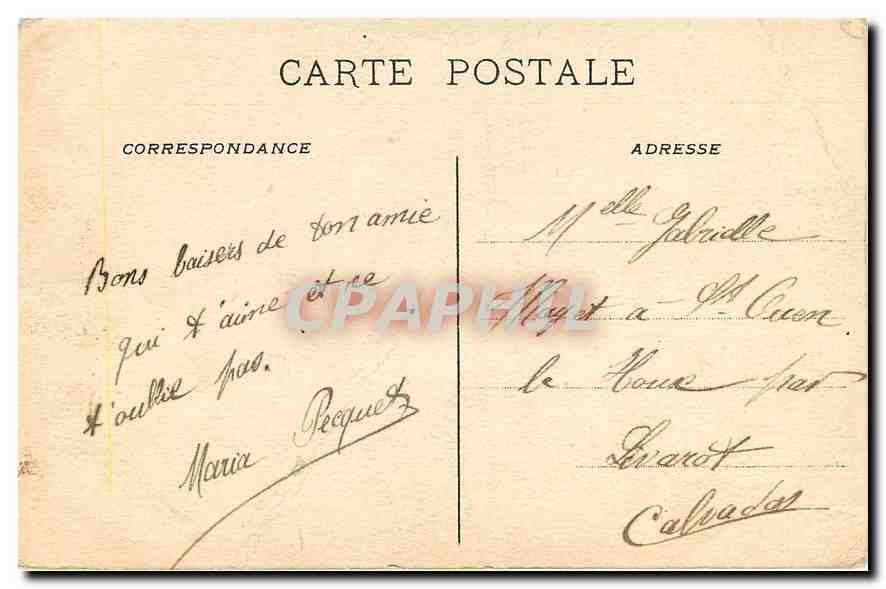 CARTE POSTALE
CORRESPONDANCE
Bons baisers de ton amie
qui t'aime et ne
t'oublie pas.
Maria Pecquet
ADRESSE
Melle Gabrielle
Maget à St Ouen
le Houx par
Livarot
Calvados
CPAPHIL